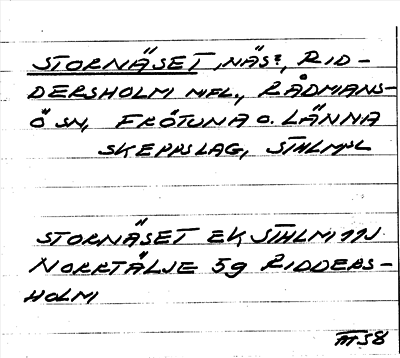 STORNÄSET, NÄS?, RID-
DERSHOLM MFL., RÅDMANS-
Ö SN, FRÖTUNA O. LÄNNA
SKEPPSLAG, STHLMS L
STORNÄSET EK STHLM 11J
NORRTÄLJE 59 RIDDERS-
HOLM
III 58